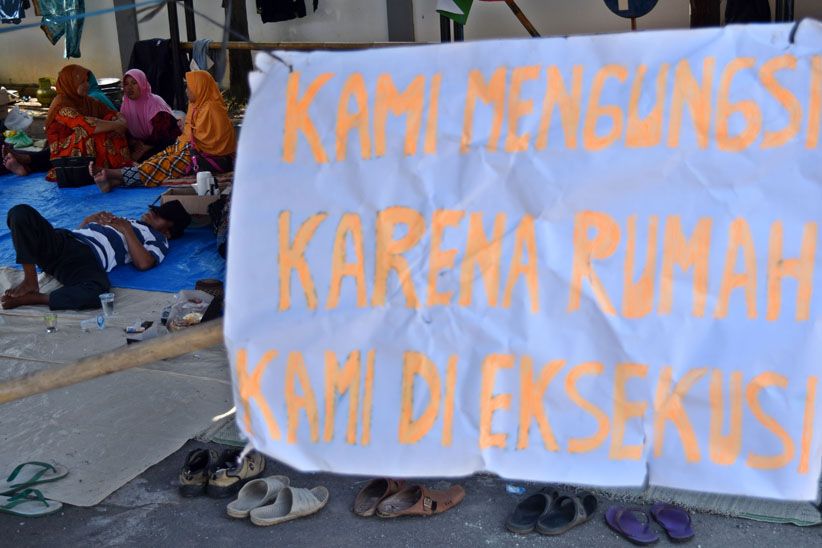 KAMI MENGUNGSI
KARENA RUMAH
KAMI DI EKSEKUSI